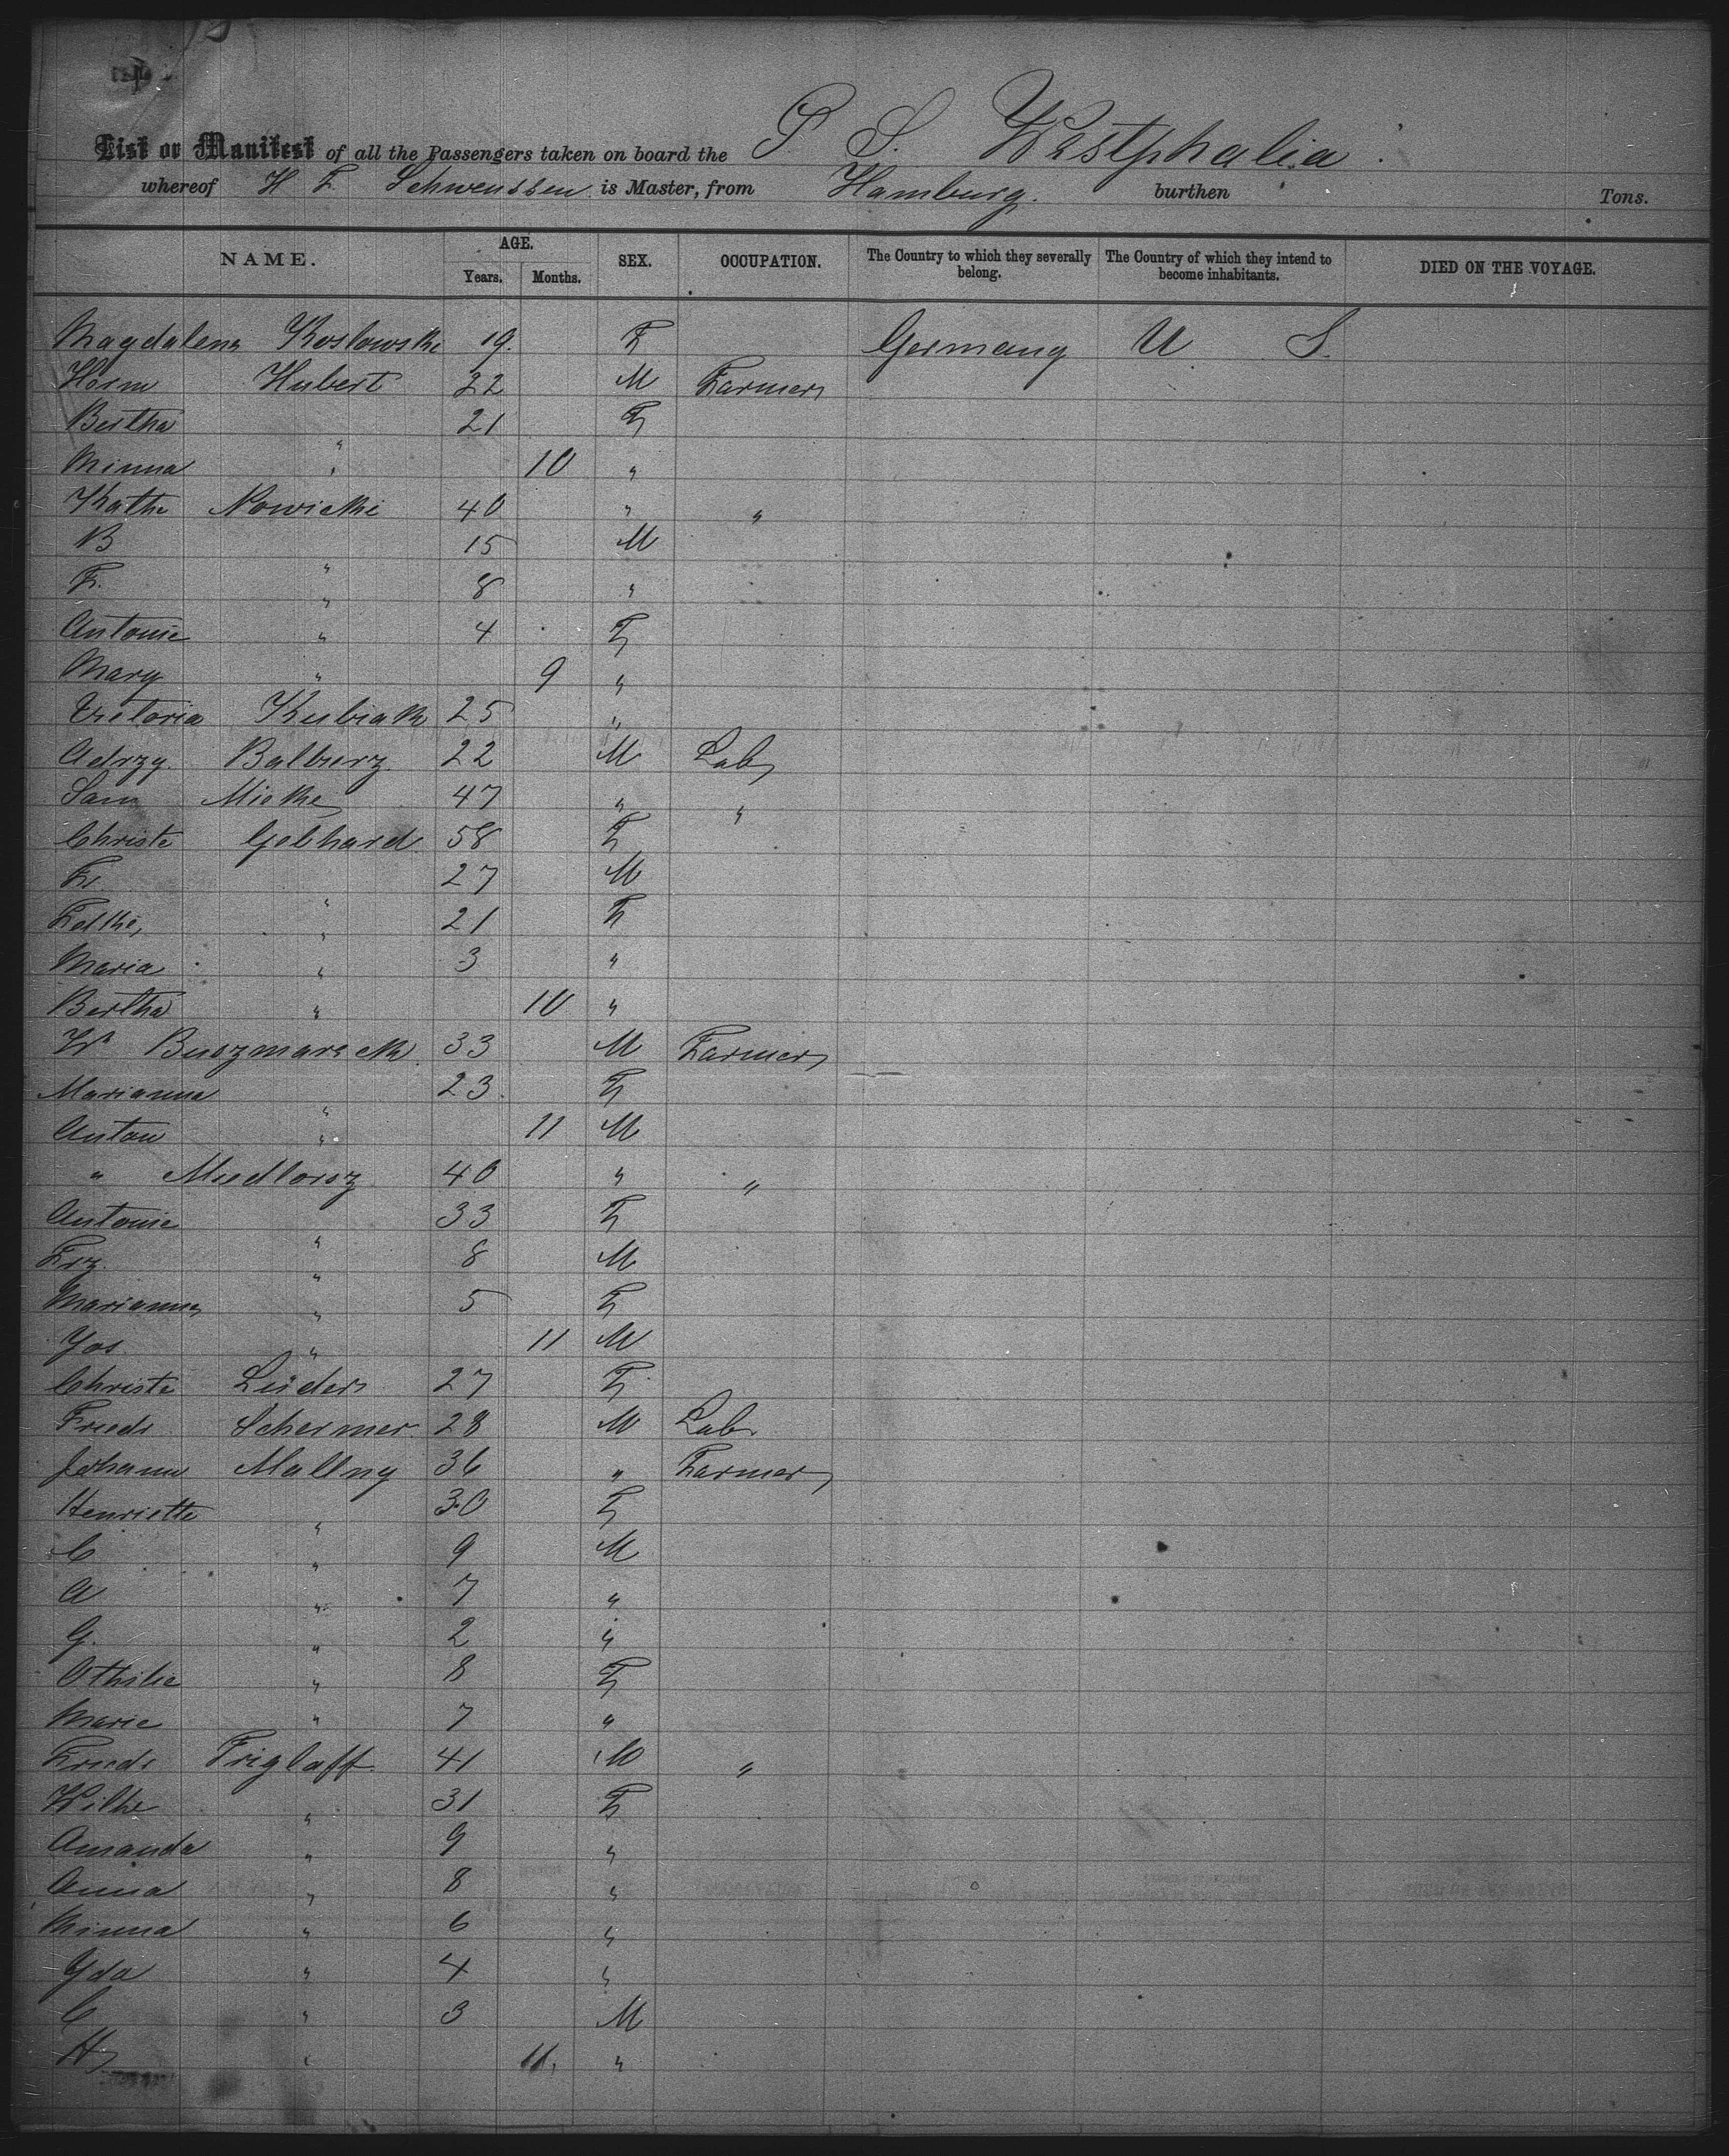 List or Manifest of all the Passengers taken on board the P S. Westphalia
whereof H F Schwenssen is Master, from Hamburg. burthen Tons.
NAME. AGE. Years. Months. SEX. OCCUPATION. The Country to which they severally belong. The Country of which they intend to become inhabitants. DIED ON THE VOYAGE.
Magdalena Koslowski 19. F Germany U S.
Herm Hubert 22 M Farmer
Bertha " 21 F
Minna " 10 "
Kathe Nowicki 40 " "
B " 15 M
F. " 8 "
Antonie " 4 F
Mary " 9 "
Victoria Kubiak 25 "
Adrzy. Balburz 22 M Lab
Sam Mielke 47 " "
Christe Gebhard 58 F
Fr. " 27 M
" 21 F
Maria " 3 "
Bertha " 10 "
Wm 33 M Farmer
Marianna " 23. F
Anton " 11 M
" 40 " "
Antonie " 33 F
Frz. " 8 M
Marianna " 5 F
Jos. " 11 M
Christe Lüders 27 F
Friedr Schermer 28 M Lab.
Johann Mallny 36 " Farmer
Henriette " 30 F
C " 9 M
A " 7 "
G. " 2 "
Othilie " 8 F
Marie " 7 "
Friedr Triglaff. 41 M "
Wilhe " 31 F
Amanda " 9 "
Anna " 8 "
Minna " 6 "
Ida " 4 "
C " 3 M
H " 11. "